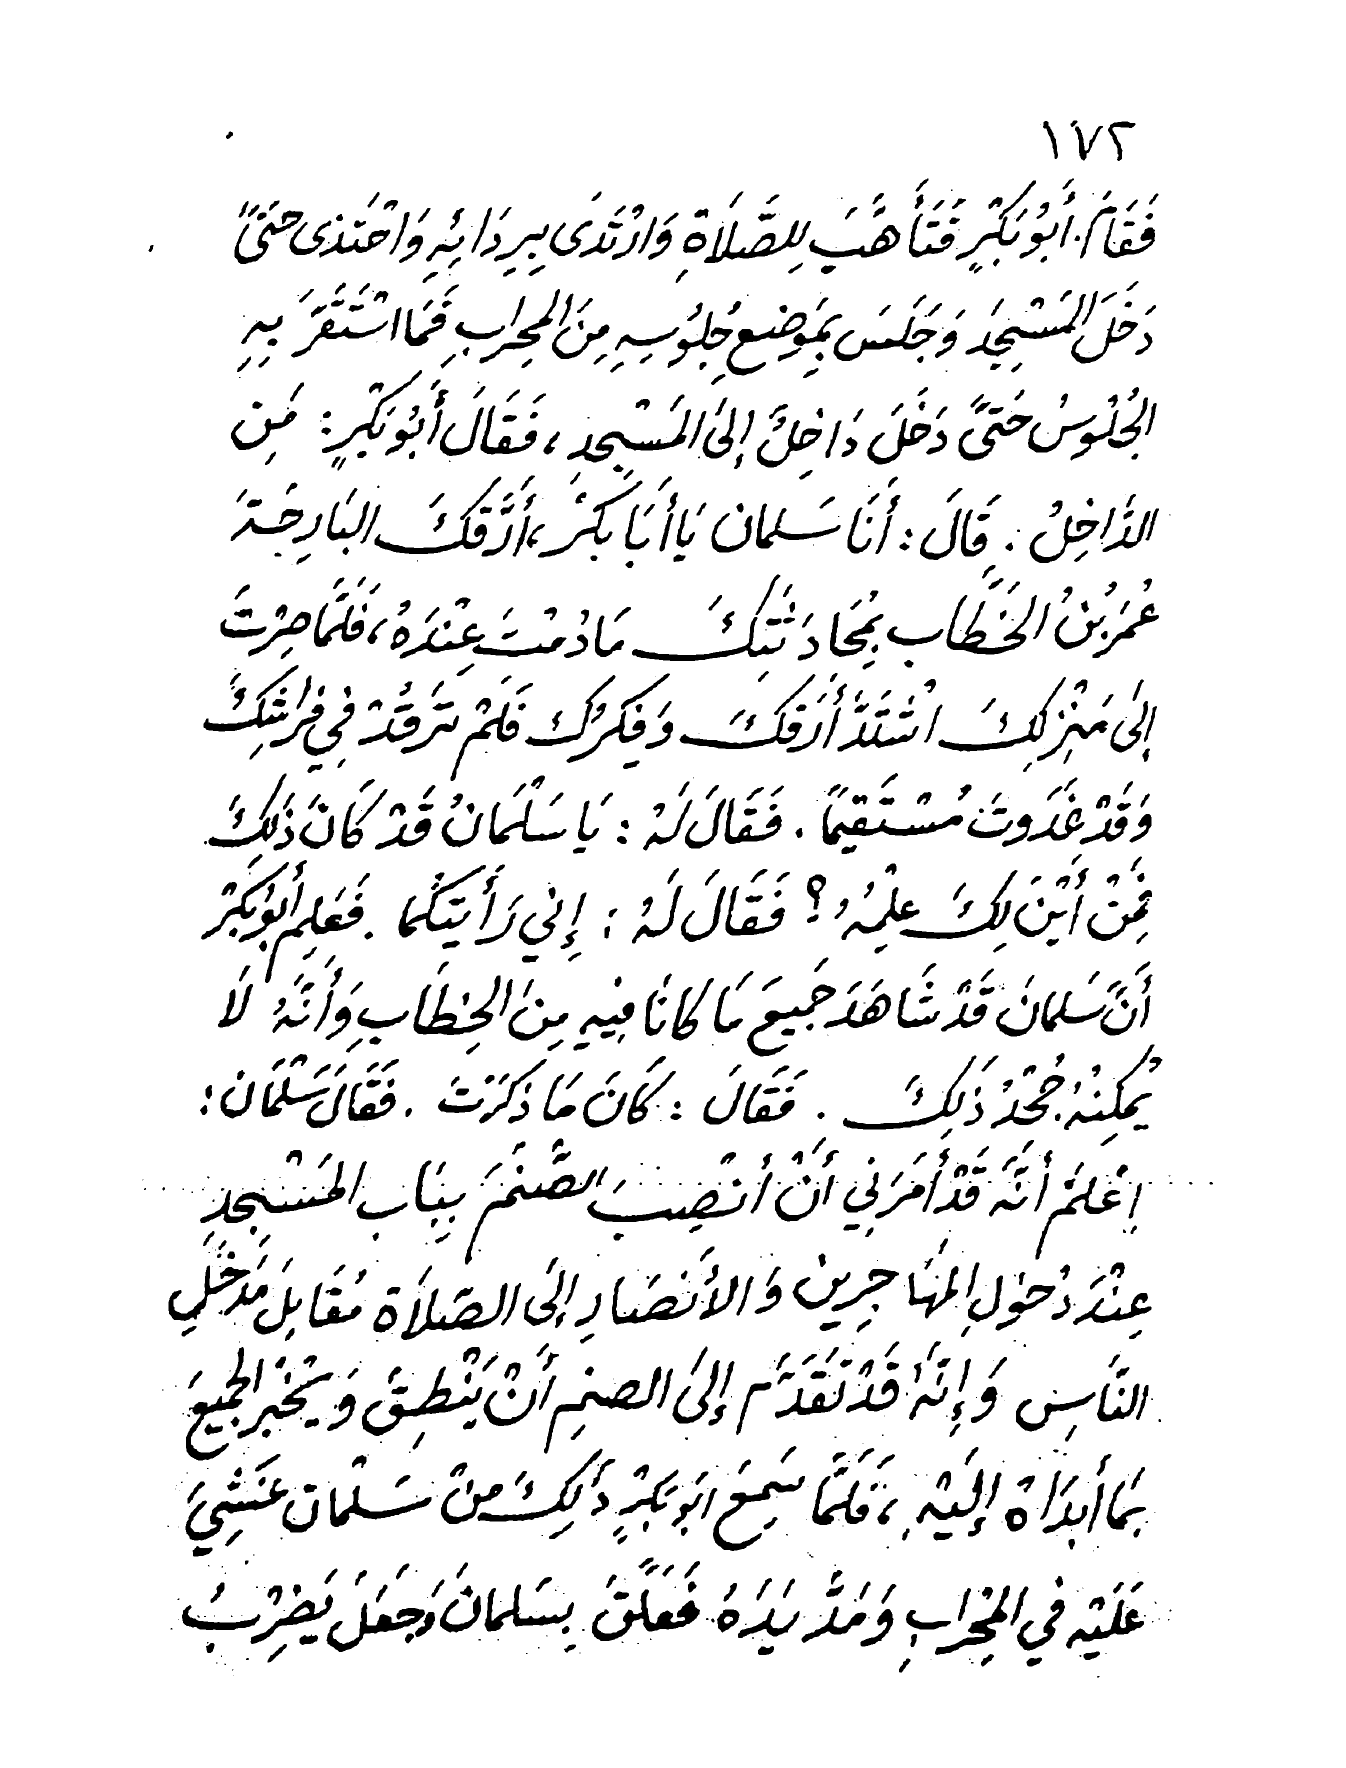 ١٧٢
فَقَامَ أَبُو بَكْرٍ فَتَأَهَّبَ لِلصَّلَاةِ وَارْتَدَى بِرِدَائِهِ وَاحْتَذى حَتىَّ
دَخَلَ المَسْجِدَ وَجَلَسَ بِمَوضِعِ جُلُوسِهِ مِنَ المِحرابِ فَمَا اسْتَقَرَّ بِهِ
الجُلُوسُ حَتىَّ دَخَلَ دَاخِلٌ إِلىَ المَسْجِدِ ، فَقَالَ أَبُو بَكْرٍ : مَن
الدَّاخِلُ . قَالَ : أَنَا سَلمان يَا أَبَا بَكْرُ ، أَرَّقَكَ البَارِحَةَ
عُمَرُ بْنُ الخَطَّابِ بِمُحَادَثَتِكَ مَا دُمْتَ عِنْدَهُ ، فَلَمَّا صِرْتَ
إِلىَ مَنْزِلِكَ اشْتَدَّ أَرَقكَ وَفِكرُك فَلَمْ تَرقُدْ فِي فِراشِكَ
وَقَدْ غَدَوتَ مُسْتَقِيمًا . فَقَالَ لَهُ : يَا سَلْمَانُ قَدْ كَانَ ذَلِكَ
فَمِنْ أَيْنَ لِكَ عِلْمُهُ ؟ فَقَالَ لَهُ : إِنِي رَأَيتكُما . فَعَلِم أَبُو بَكْر
أَنَّ سَلمانَ قَدْ شَاهَدَ جَمِيعَ مَا كانَا فِيهِ مِنَ الخِطَابِ وَأَنَّهُ لَا
يُمكِنُهُ جُحْدُ ذَلِكَ . فَقَالَ : كَانَ مَا ذكَرْتَ . فَقَالَ سَلْمَان :
إعْلَمْ أَنَّهَ قَدْ أَمَرَنِي أَنْ أنْصِبَ الصَّنَمَ بِبَابِ المَسْجِدِ
عِنْدَ دُخُولِ المهَاجِرِين وَالأَنصَارِ إِلىَ الصَّلاَة مُقَابِلَ مَدْخَلِ
النَاسِ وَإِنَّهُ قَدْ تَقَدَّمَ إِلىَ الصنمِ أَنْ يَنْطِقَ وَيخْبر الجميعَ
بِمَا أَبدَاهُ إِلَيْهِ ، فَلَمَّا سَمِعَ ابَو بَكْرٍ ذَلِكَ مِنْ سَلْمان غَشِيَ
عَلَيْهِ في المِحْرابِ وَمَدَّ يَدَهُ فَعَلَّقَ بِسَلمانَ وَجَعَلَ يَضِرْبُ